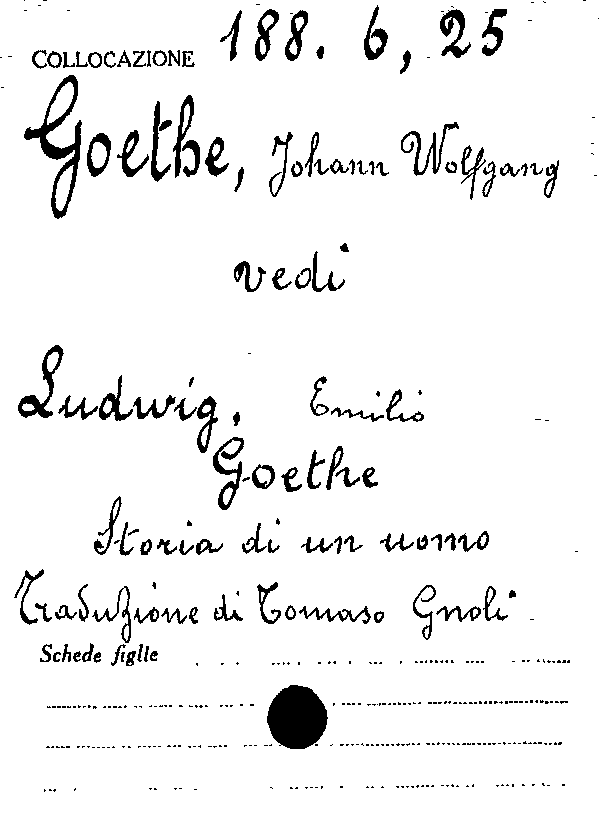 COLLOCAZIONE 188. 6, 25
Goethe, Johann Wolfgang
vedi
Ludwig, Emilio
Goethe
Storia di un uomo
Traduzione di Tomaso Gnoli
Schede figlie